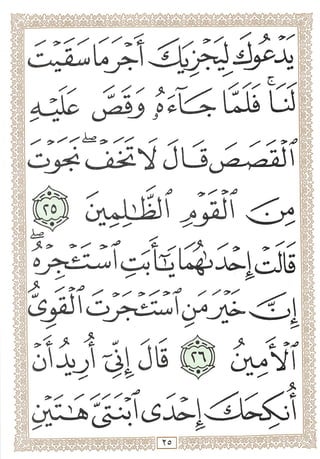 يَدْعُوكَ لِيَجْزِيَكَ أَجْرَ مَا سَقَيْتَ
لَنَا ۚ فَلَمَّا جَآءَهُۥ وَقَصَّ عَلَيْهِ
ٱلْقَصَصَ قَالَ لَا تَخَفْ ۖ نَجَوْتَ
مِنَ ٱلْقَوْمِ ٱلظَّٰلِمِينَ ٢٥
قَالَتْ إِحْدَىٰهُمَا يَٰٓأَبَتِ ٱسْتَـْٔجِرْهُ ۖ
إِنَّ خَيْرَ مَنِ ٱسْتَـْٔجَرْتَ ٱلْقَوِىُّ
ٱلْأَمِينُ ٢٦ قَالَ إِنِّىٓ أُرِيدُ أَنْ
أُنكِحَكَ إِحْدَى ٱبْنَتَىَّ هَٰتَيْنِ
٢٥